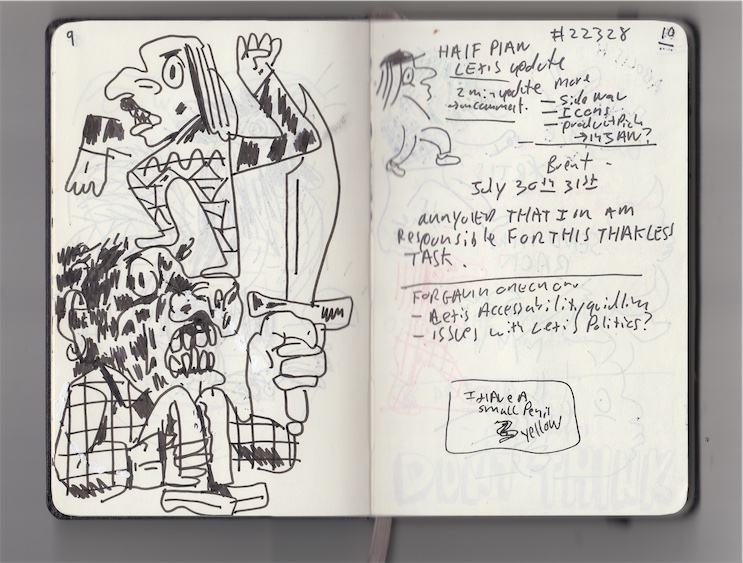 9
#22328
10
HALF PLAN
LEXIS update
2 min update more
comment.
— Side nav
— Icons
— product
→ 143 AN?
Brent -
July 30th 31st
annyoied THAT I'm AM
Responsible FOR THIS THAKLESS
TASK.
FOR GAVIN ONE ON ONE
- Lexis Accessability
- ISSUES with Lexis Politics?
I HAVE A
small Penis
yellow
DONT THINK